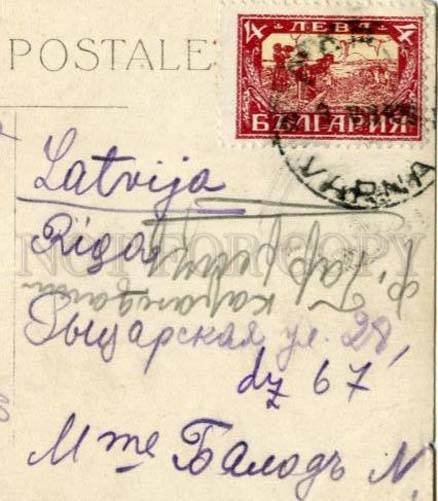 POSTALE
4 ЛЕВА 4
БЪЛГАРИЯ
VARNA
Latvija
Rīga
Рыцарская ул. 28,
dz 67
Mme Балодъ N.
NOT FOR COPY